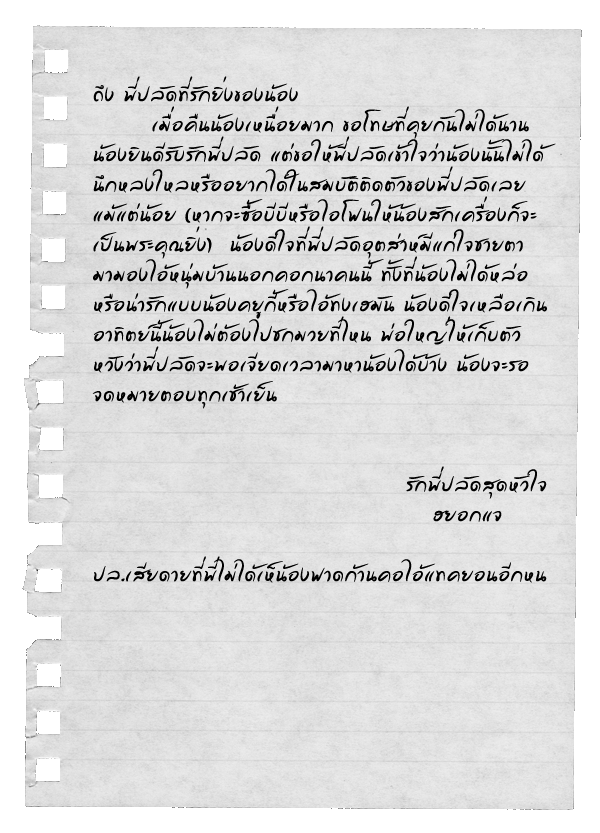 ถึง พี่ปลัดที่รักยิ่งของน้อง
เมื่อคืนน้องเหนื่อยมาก ขอโทษที่คุยกันไม่ได้นาน
น้องยินดีรับรักพี่ปลัด แต่ขอให้พี่ปลัดเข้าใจว่าน้องนั้นไม่ได้
นึกหลงใหลหรืออยากได้ในสมบัติติดตัวของพี่ปลัดเลย
แม้แต่น้อย (หากจะซื้อบีบีหรือไอโฟนให้น้องสักเครื่องก็จะ
เป็นพระคุณยิ่ง) น้องดีใจที่พี่ปลัดอุตส่าห์มีแก่ใจชายตา
มามองไอ้หนุ่มบ้านนอกคอกนาคนนี้ ทั้งที่น้องไม่ได้หล่อ
หรือน่ารักแบบน้องคยูกี้หรือไอ้ทงเฮมัน น้องดีใจเหลือเกิน
อาทิตย์นี้น้องไม่ต้องไปชกมวยที่ไหน พ่อใหญ่ให้เก็บตัว
หวังว่าพี่ปลัดจะพอเจียดเวลามาหาน้องได้บ้าง น้องจะรอ
จดหมายตอบทุกเช้าเย็น
รักพี่ปลัดสุดหัวใจ
ฮยอกแจ
ปล.เสียดายที่พี่ไม่ได้เห็นน้องฟาดก้านคอไอ้แทคยอนอีกหน